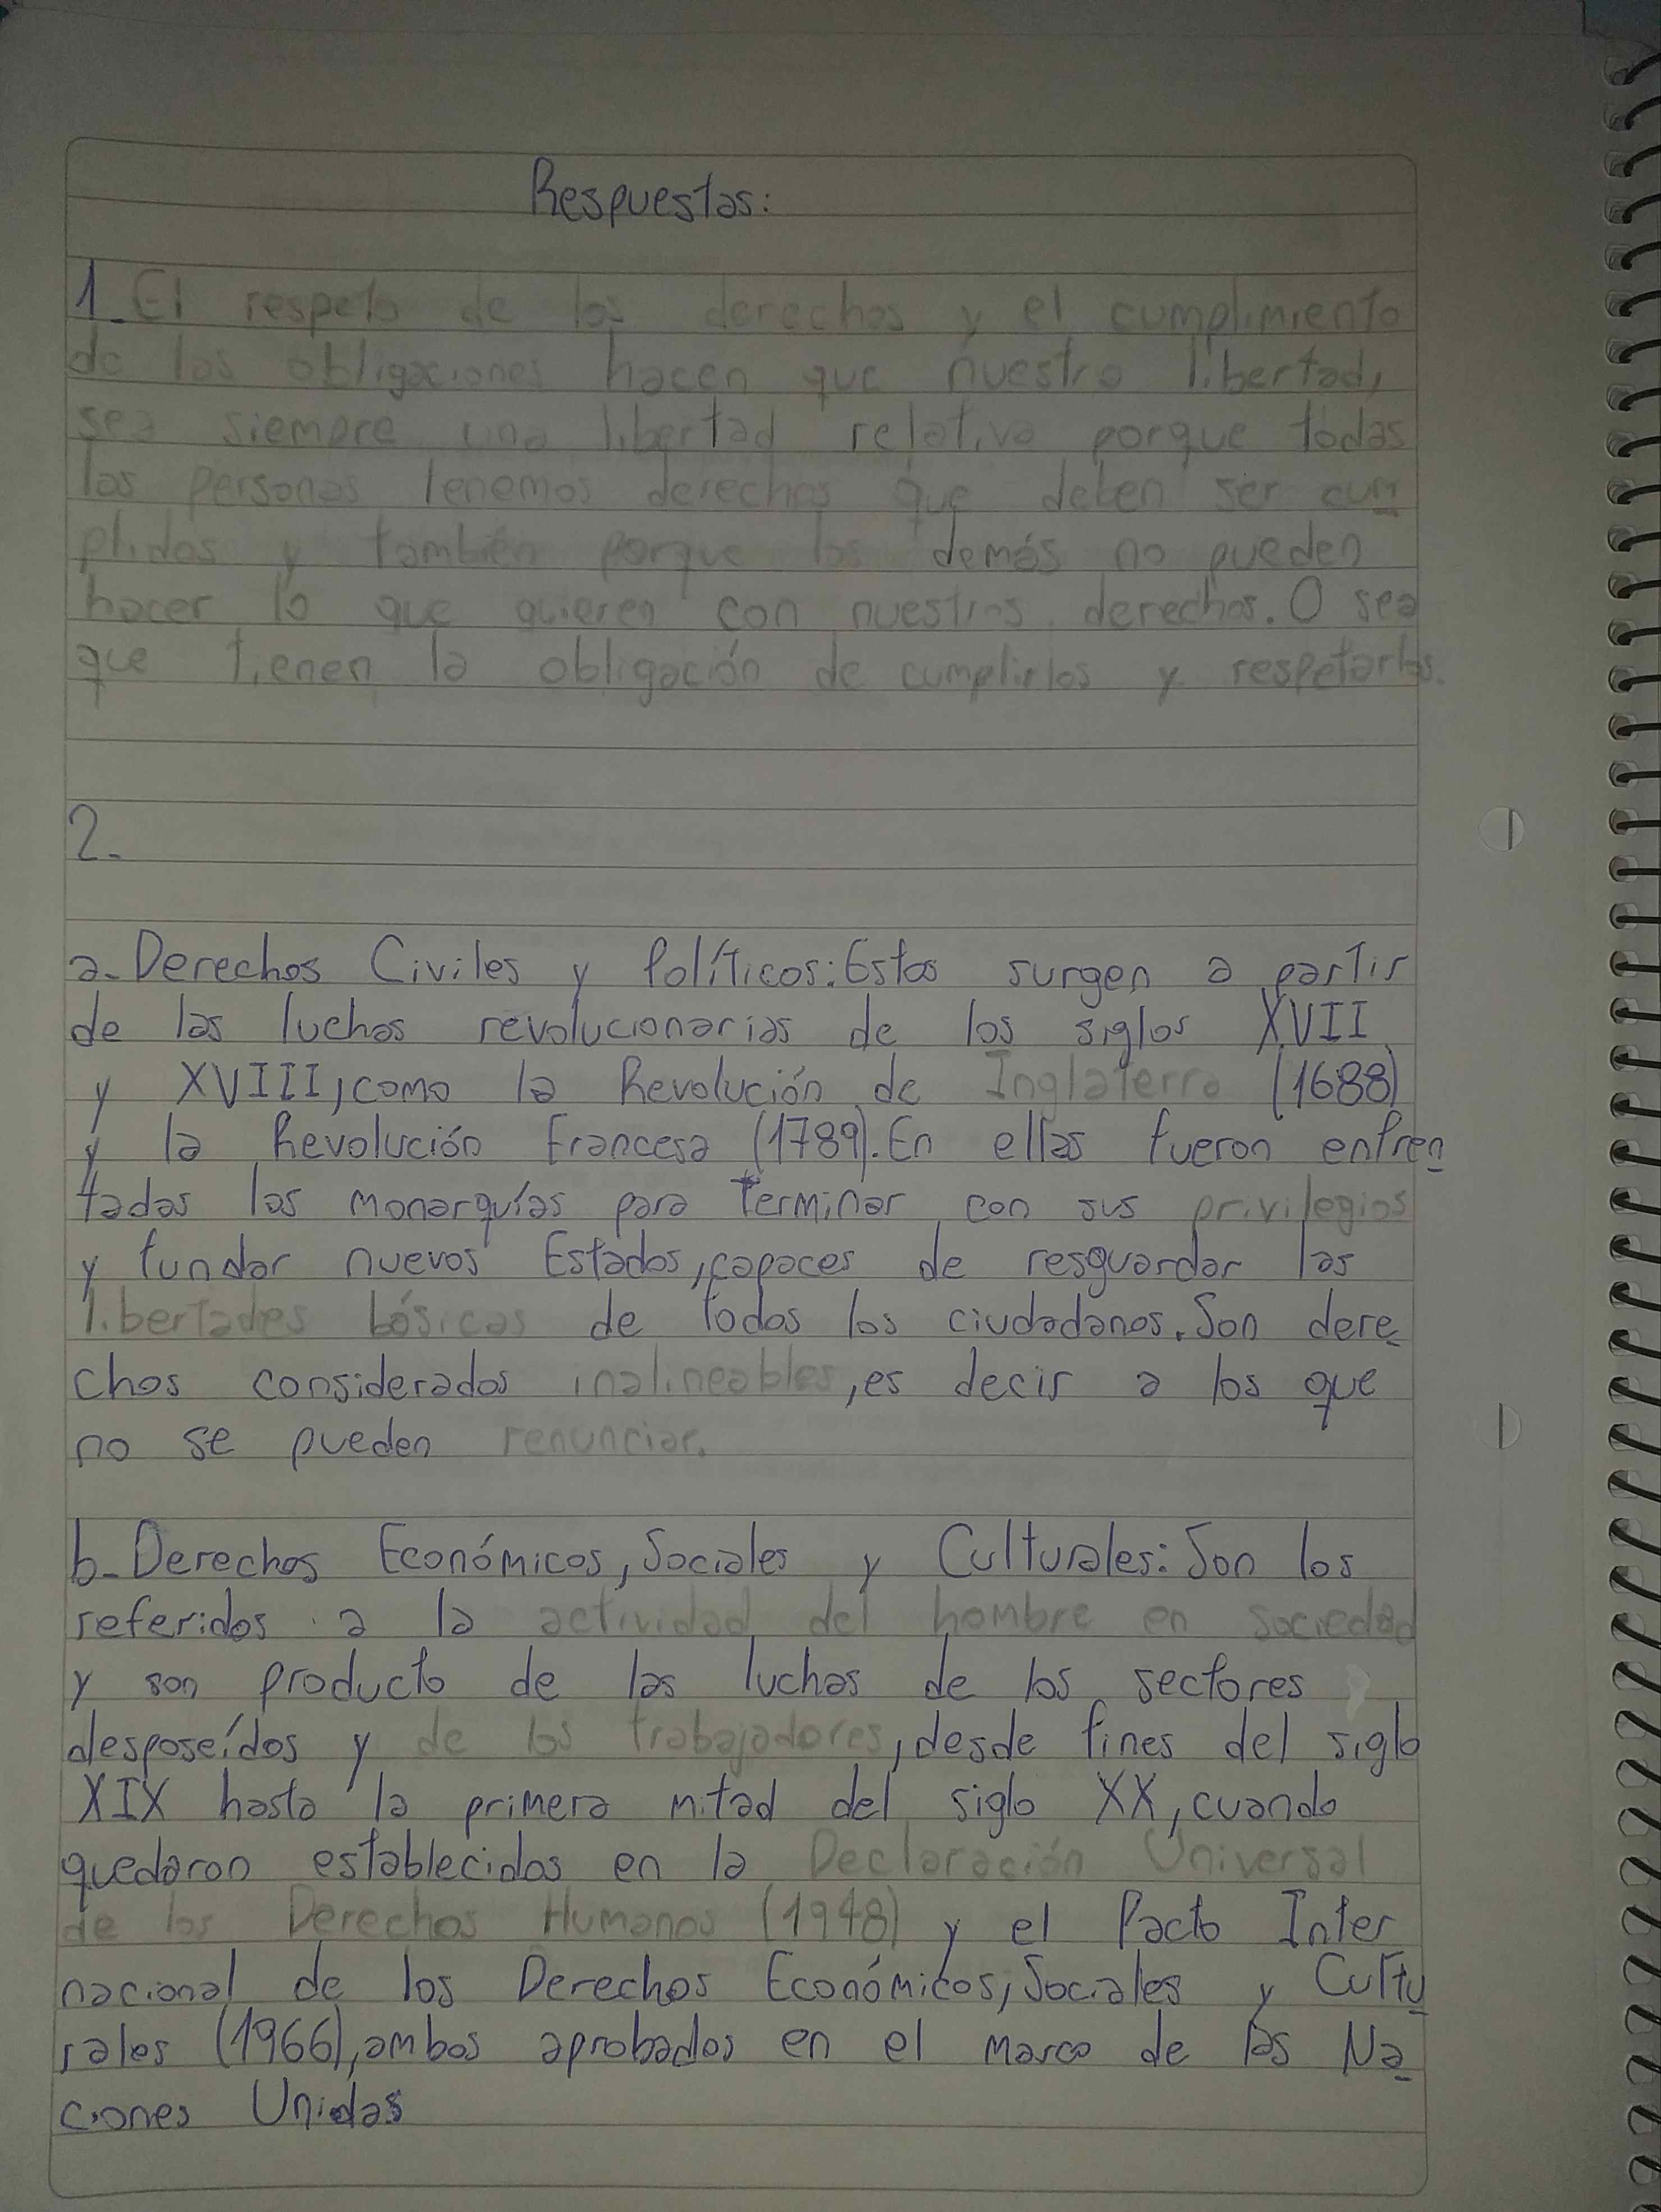 Respuestas:
1_ El respeto de los derechos y el cumplimiento
de las obligaciones hacen que nuestra libertad,
sea siempre una libertad relativa porque todas
las personas tenemos derechos que deben ser cum
plidos y también porque los demás no pueden
hacer lo que quieren con nuestros derechos. O sea
que tienen la obligación de cumplirlos y respetarlos.
2_
a_ Derechos Civiles y Políticos: Estos surgen a partir
de las luchas revolucionarias de los siglos XVII
y XVIII, como la Revolución de Inglaterra (1688)
y la Revolución Francesa (1789). En ellas fueron enfren
tadas las monarquías para terminar con sus privilegios
y fundar nuevos Estados, capaces de resguardar las
libertades básicas de todos los ciudadanos. Son dere
chos considerados inalineables, es decir a los que
no se pueden renunciar.
b_ Derechos Económicos, Sociales y Culturales: Son los
referidos a la actividad del hombre en sociedad
y son producto de las luchas de los sectores
desposeídos y de los trabajadores, desde fines del siglo
XIX hasta la primera mitad del siglo XX, cuando
quedaron establecidos en la Declaración Universal
de los Derechos Humanos (1948) y el Pacto Inter
nacional de los Derechos Económicos, Sociales y Cultu
rales (1966), ambos aprobados en el marco de las Na
ciones Unidas